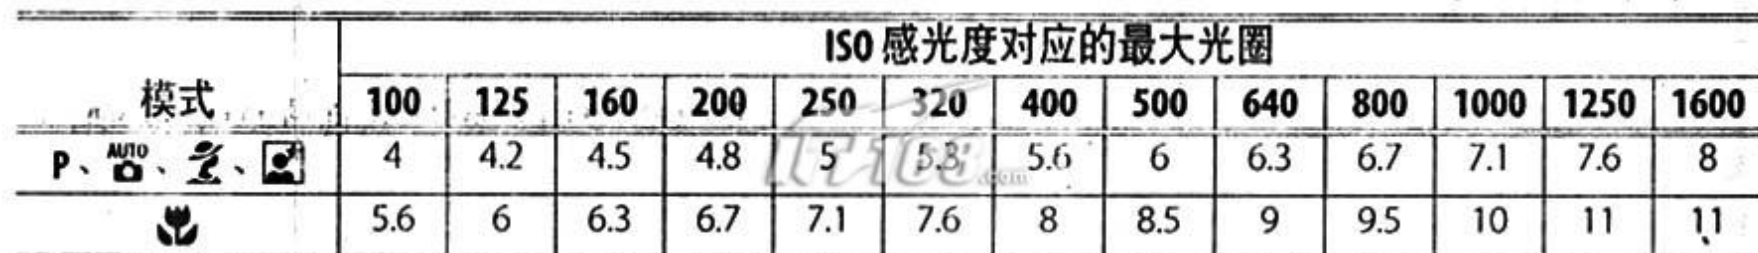 ISO 感光度对应的最大光圈
模式 100 125 160 200 250 320 400 500 640 800 1000 1250 1600
P、AUTO、、 4 4.2 4.5 4.8 5 5.3 5.6 6 6.3 6.7 7.1 7.6 8
5.6 6 6.3 6.7 7.1 7.6 8 8.5 9 9.5 10 11 11
IT168.com